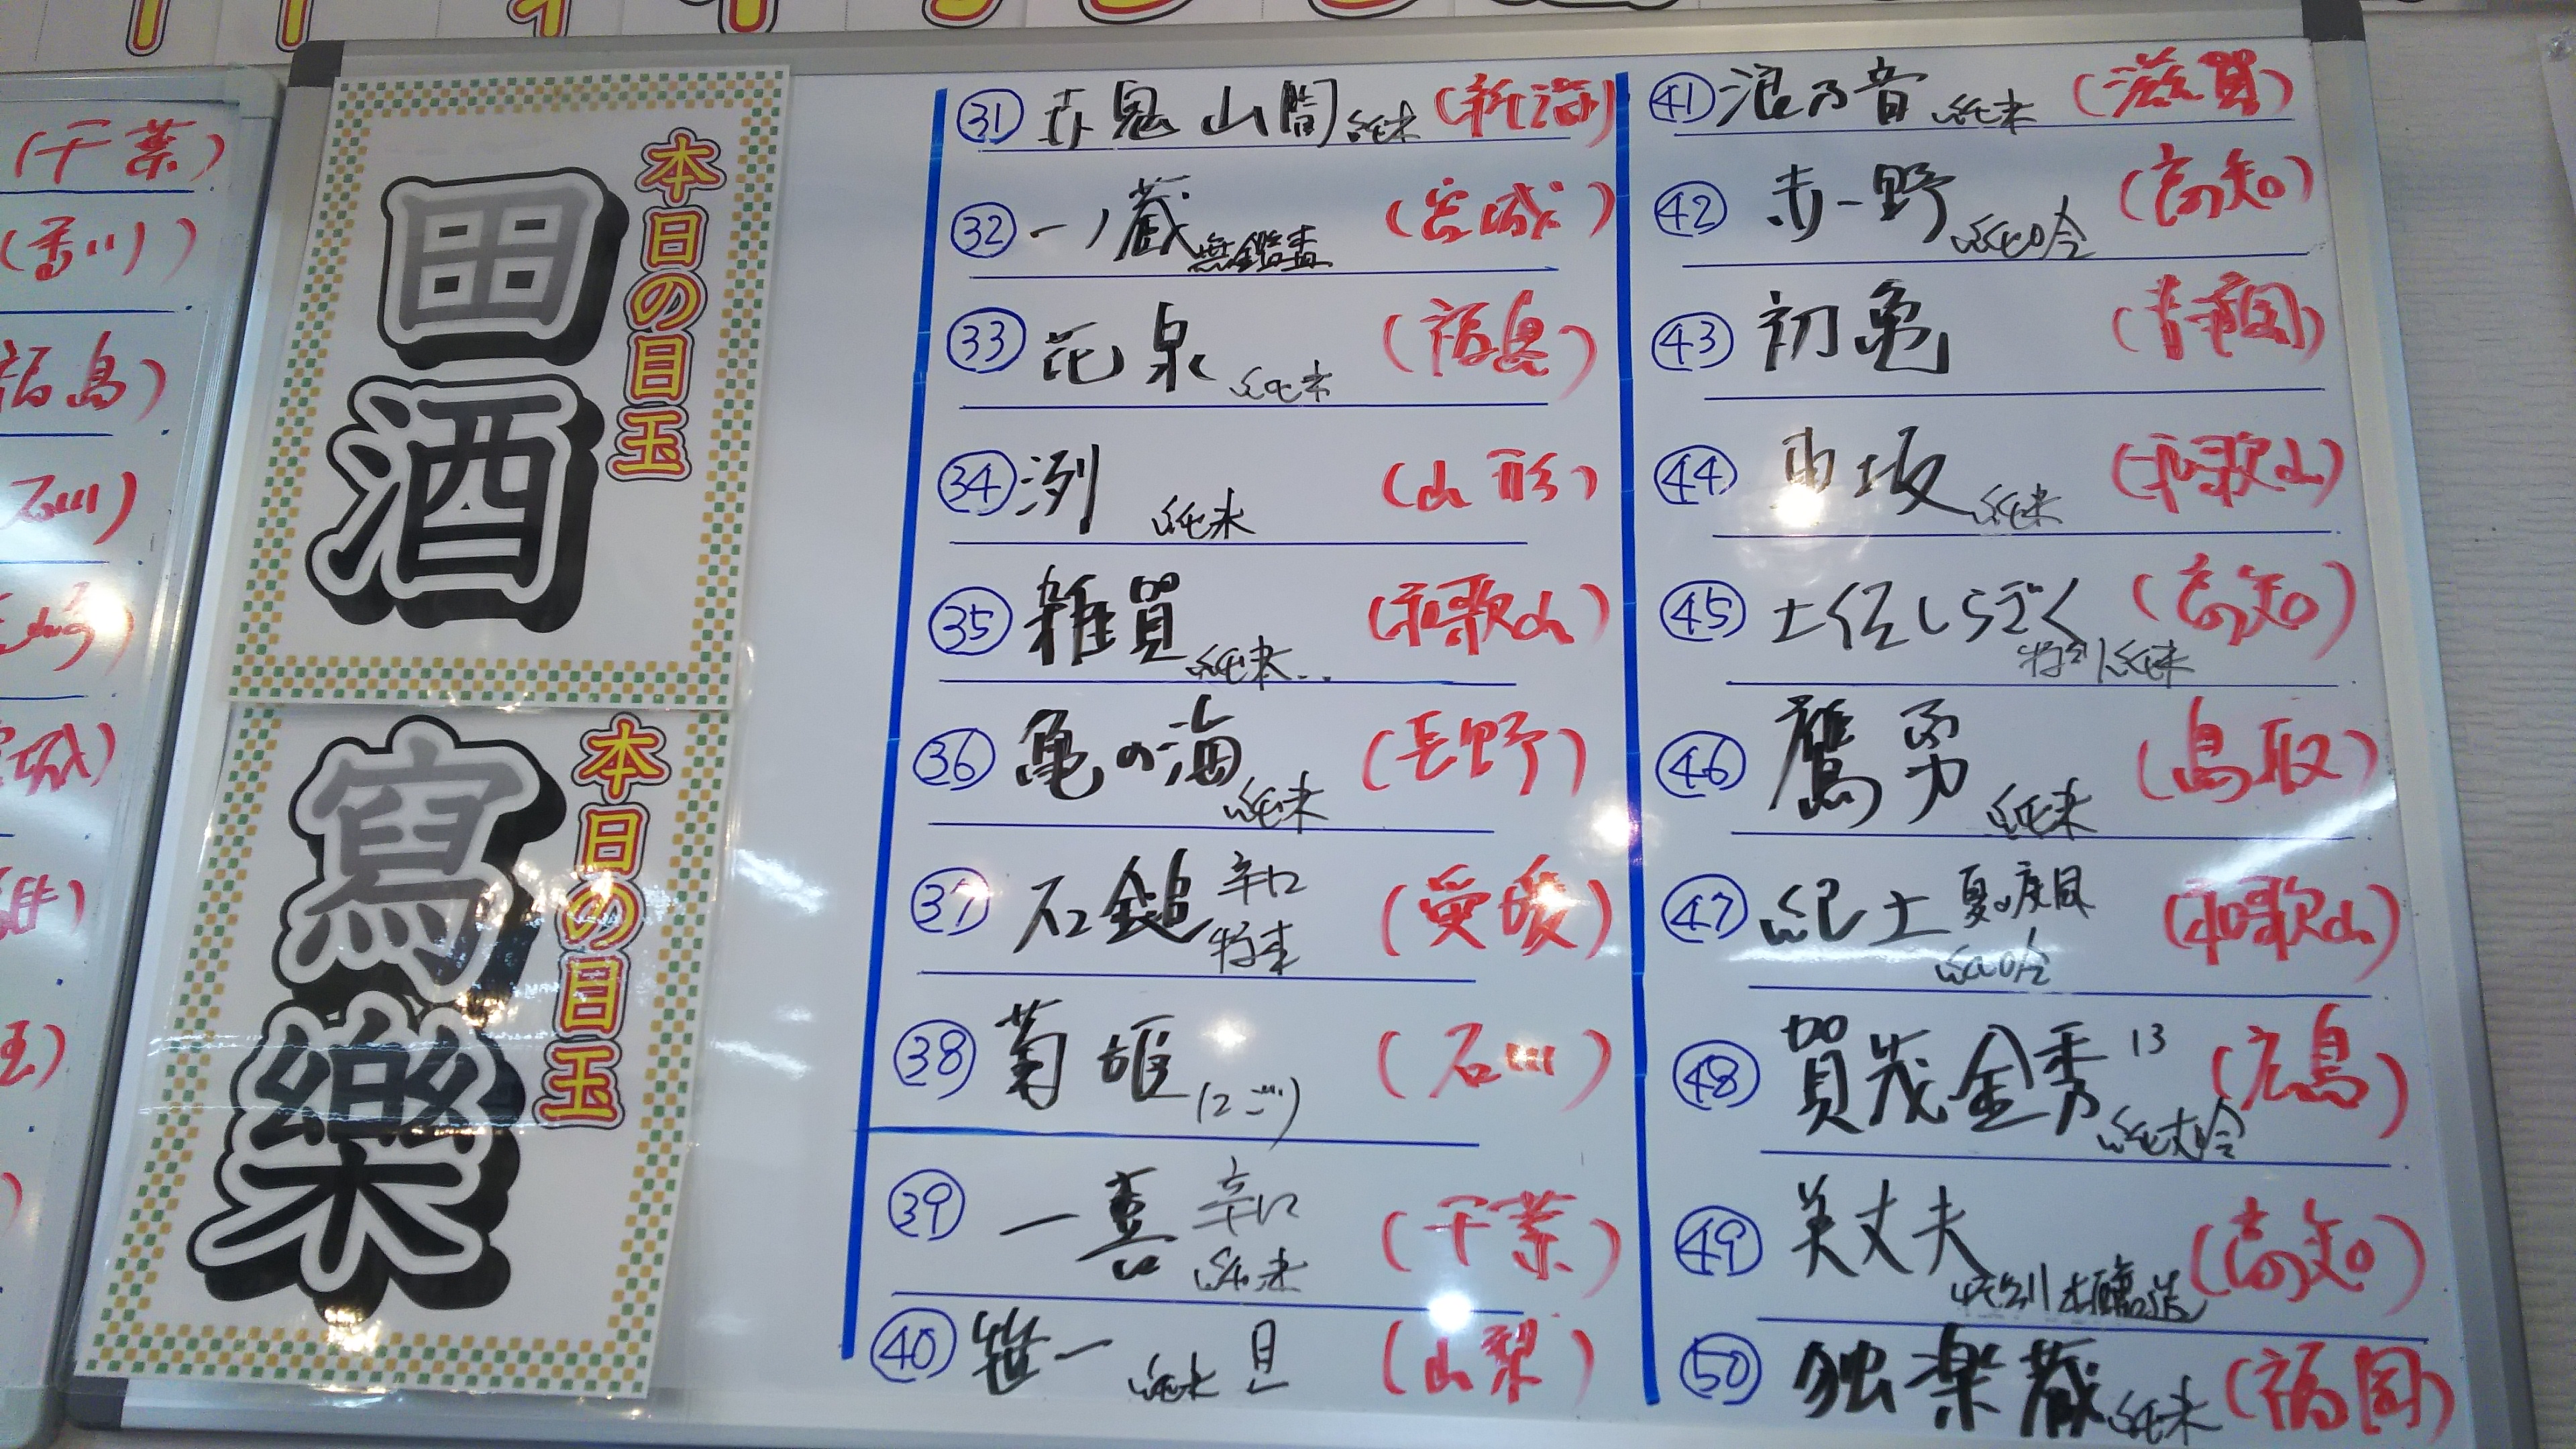 (千葉)
(香川)
福島)
石川)
城)
本日の目玉
田酒
本日の目玉
寫樂
㉛ 鬼山間 純米 (新潟)
㉜ 一ノ蔵 無鑑査 (宮城)
㉝ 花泉 純米 (福島)
㉞ 洌 純米 (山形)
㉟ 雑賀 純米 (和歌山)
㊱ 亀の海 純米 (長野)
㊲ 石鎚 辛口 (愛媛)
㊳ 菊姫 (にごり) (石川)
㊴ 一喜 辛口 純米 (千葉)
㊵ 笹一 純米 (山梨)
㊶ 浪乃音 純米 (滋賀)
㊷ 赤野 純吟 (高知)
㊸ 初亀 (静岡)
㊹ 車坂 純米 (和歌山)
㊺ 土佐しらぎく 特別純米 (高知)
㊻ 鷹勇 純米 (鳥取)
㊼ 紀土 夏の疾風 純吟 (和歌山)
㊽ 賀茂金秀 13 純大吟 (広島)
㊾ 美丈夫 特別本醸造 (高知)
㊿ 独楽蔵 純米 (福岡)